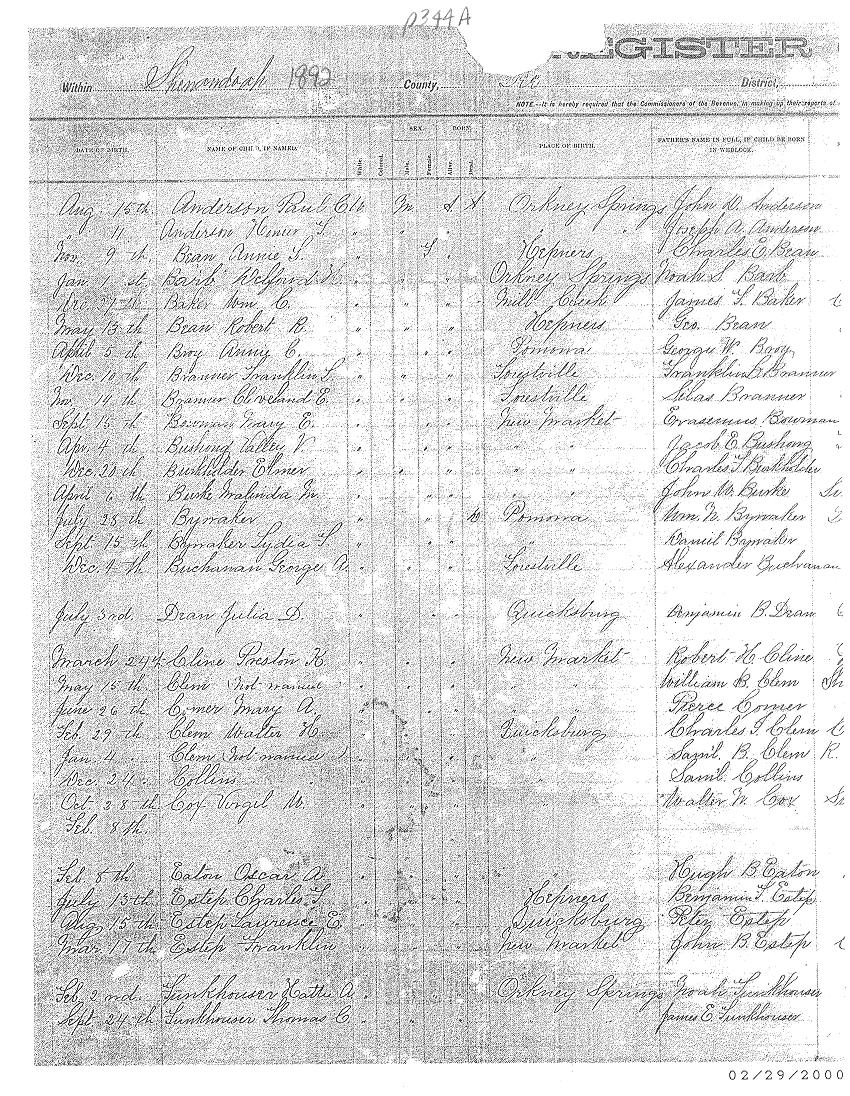 p344A
REGISTER
Within Shenandoah 1892 County, District,
NOTE.—It is hereby required that the Commissioners of the Revenue, in making up their reports of
SEX. BORN
DATE OF BIRTH. NAME OF CHILD, IF NAMED. White. Colored. Male. Female. Alive. Dead. PLACE OF BIRTH. FATHER'S NAME IN FULL, IF CHILD BE BORN
IN WEDLOCK.
Aug 15th Anderson Paul C W M A Orkney Springs John D. Anderson
" 11 Anderson Homer F. " " " " Joseph A. Anderson
Nov. 9th Bean Annie S. " F " Hepners Charles E. Bean
Jan 1st Barb Welford " " " Orkney Springs Noah S. Barb
Baker Wm C. " " " Mill Creek James F. Baker
May 13th Bean Robert R. " " " Hepners Geo. Bean
April 5th Broy Anny C. " " " Pomona George W. Broy
Dec. 10th Branner Franklin S. " " " Forestville Franklin Branner
Nov. 14th Branner Cleveland E. " " " Forestville Silas Branner
Sept 15th Bowman Mary E. " " " New Market Erasemus Bowman
Apr. 4th Bushong Valley V " " " " " Jacob E. Bushong
Dec. 20th Burkholder Elmer " " " " " Charles F. Burkholder
April 6th Burke Malinda M. " " " " " John W. Burke
July 28th Bywaker " " D Pomona Wm. N. Bywaker
Sept. 15th Bywaker Lydia F. " " " " Daniel Bywaker
Dec. 9th Buchanan George A. " " " Forestville Alexander Buchanan
July 3rd. Dean Julia D. " " " Quicksburg Benjamin B. Dean
March 24th Cline Preston K. " " " New Market Robert H. Cline
May 15th Clem (Not named) " " " " " William B. Clem
June 26th Comer Mary A. " " " " " Pierce Comer
Feb. 29th Clem Walter H. " " " Quicksburg Charles F. Clem
Jan 4 Clem (Not named) " " " " Saml. B. Clem R.
Dec. 24 Collins " " " " Saml. Collins
Oct. 28th Cox Virgil W. " " " " Walter W. Cox
Feb. 8th.
Feb 8th Eaton Oscar A " " " " Hugh B. Eaton
July 15th Estep Charles F. " " " Hepners Benjamin F. Estep
Aug. 15th Estep Laurence E. " " " Quicksburg Estep
Mar. 17th Estep Franklin " " " New Market John B. Estep
Feb. 2nd. Funkhouser Hattie A " " " Orkney Springs Noah Funkhouser
Sept. 24th Funkhouser Thomas C " " " " James E. Funkhouser
02/29/2000